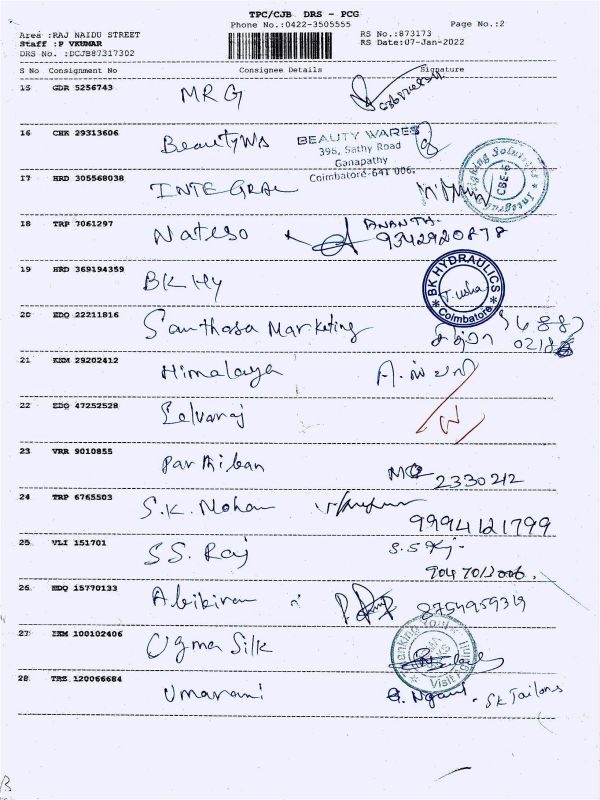 TPC/CJB DRS - PCG
Phone No.:0422-3505555 Page No.:2
Area :RAJ NAIDU STREET RS No.:873173
Staff :P VKUMAR RS Date:07-Jan-2022
DRS No. :DCJB87317302
S No Consignment No Consignee Details Signature
15 GDR 5256743 MR G
16 CHK 29313606 BeautyWs
BEAUTY WARES
395, Sathy Road
Ganapathy
Coimbatore-641 006.
17 HRD 305568038 INTEGRAL
CBE-6
18 TRP 7061297 Nateso ANANTH.
9342920878
19 HRD 369194359 BK Hy
BK HYDRAULICS
T. usha
Coimbatore
20 EDQ 22211816 Santhasa Marketing
21 KKM 29202412 Himalaya
22 EDQ 47252528 Selvaraj
23 VRR 9010855 Parthiban
2330212
24 TRP 6765503 S.K. Mohan
9994121799
25 VLI 151701 SS. Raj
26 EDQ 15770133 Abikiran
8754959319
27 100102406 Ugma Silk
28 120066684 Umarani
SK Tailors